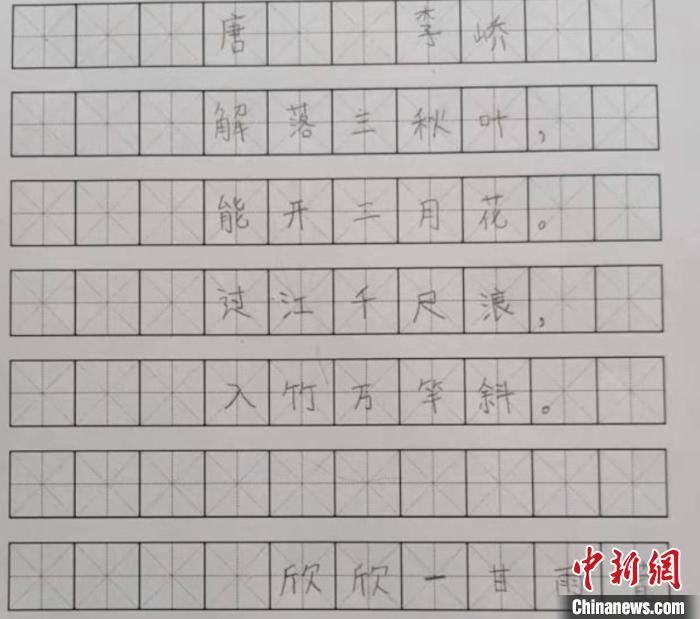 唐 李峤
解落三秋叶，
能开二月花。
过江千尺浪，
入竹万竿斜。
欣欣一甘雨
中新网
Chinanews.com